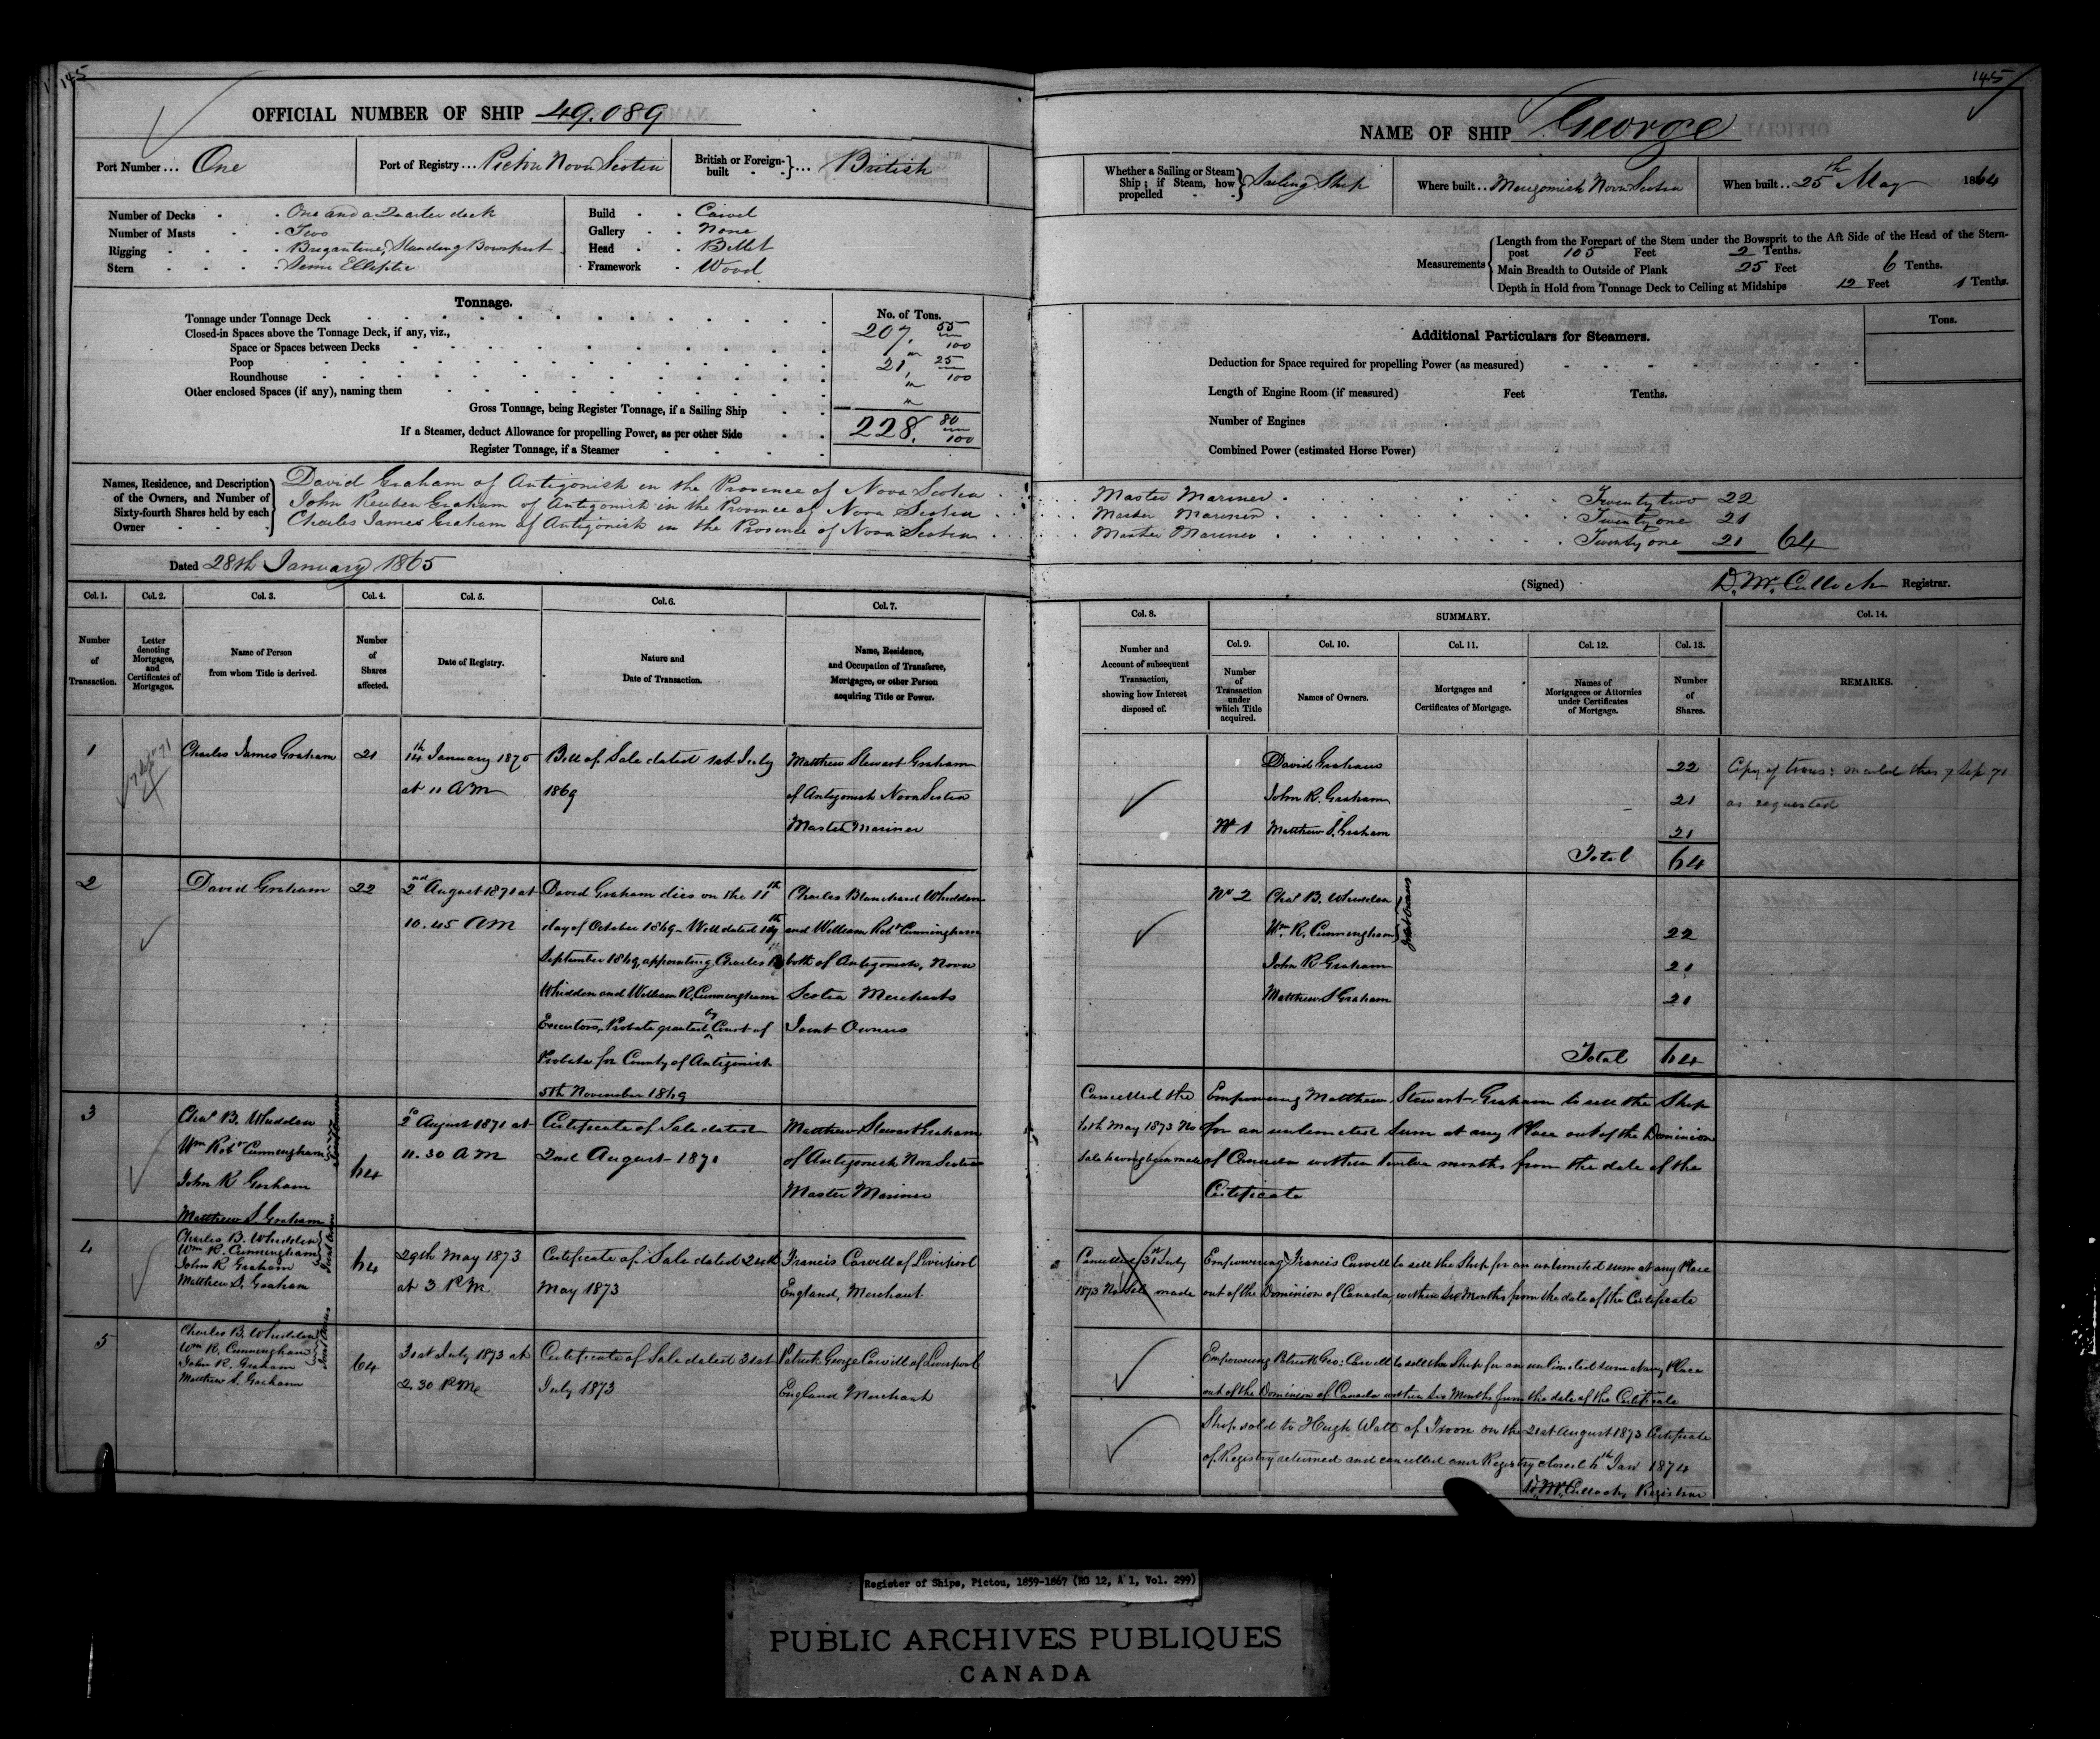 145
OFFICIAL NUMBER OF SHIP 49.089
Port Number ... One
Port of Registry ... Pictou Nova Scotia
British or Foreign-built ... British
Number of Decks - One and a Quarter deck
Number of Masts - Two
Rigging - Brigantine, Standing Bowsprit
Stern - Semi Elliptic
Build - Carvel
Gallery - None
Head - Billet
Framework - Wood
Tonnage.
No. of Tons.
Tonnage under Tonnage Deck 207. 55/100
Closed-in Spaces above the Tonnage Deck, if any, viz.,
Space or Spaces between Decks "
Poop 21, 25/100
Roundhouse "
Other enclosed Spaces (if any), naming them "
Gross Tonnage, being Register Tonnage, if a Sailing Ship 228. 80/100
If a Steamer, deduct Allowance for propelling Power, as per other Side
Register Tonnage, if a Steamer
Names, Residence, and Description of the Owners, and Number of Sixty-fourth Shares held by each Owner
David Graham of Antigonish in the Province of Nova Scotia
John Reuben Graham of Antigonish in the Province of Nova Scotia
Charles James Graham of Antigonish in the Province of Nova Scotia
Dated 28th January 1865
Col. 1. Col. 2. Col. 3. Col. 4. Col. 5. Col. 6. Col. 7.
Number of Transaction.
Letter denoting Mortgages, and Certificates of Mortgages.
Name of Person from whom Title is derived.
Number of Shares affected.
Date of Registry.
Nature and Date of Transaction.
Name, Residence, and Occupation of Transferee, Mortgagee, or other Person acquiring Title or Power.
1
Charles James Graham
21
14th January 1870
at 11 AM
Bill of Sale dated 1st July
1869
Matthew Stewart Graham
of Antigonish Nova Scotia
Master Mariner
2
David Graham
22
2nd August 1871 at
10.45 AM
David Graham dies on the 11th
day of October 1869 - Will dated
September 1869, appointing Charles B
Whidden and William R. Cunningham
Executors, Probate granted by Court of
Probate for County of Antigonish
5th November 1869
Charles Blanchard Whidden
and William Robt Cunningham
both of Antigonish, Nova
Scotia Merchants
Joint Owners
3
Chas B. Whidden
Wm Robt Cunningham
John R Graham
Matthew S. Graham
Joint Owners
64
2d August 1871 at
11.30 AM
Certificate of Sale dated
2nd August 1871
Matthew Stewart Graham
of Antigonish Nova Scotia
Master Mariner
4
Charles B. Whidden
Wm R. Cunningham
John R Graham
Matthew S. Graham
Joint Owners
64
29th May 1873
at 3 P.M.
Certificate of Sale dated
May 1873
Francis Carvill of Liverpool
England, Merchant
5
Charles B. Whidden
Wm R. Cunningham
John R. Graham
Matthew S. Graham
Joint Owners
64
31st July 1873 at
2.30 PM
Certificate of Sale dated 31st
July 1873
Patrick George Carvill of Liverpool
England Merchant
145
NAME OF SHIP George
Whether a Sailing or Steam Ship; if Steam, how propelled Sailing Ship
Where built .. Merigomish Nova Scotia
When built .. 25th May 1864
Measurements
Length from the Forepart of the Stem under the Bowsprit to the Aft Side of the Head of the Stern-
post 105 Feet 2 Tenths.
Main Breadth to Outside of Plank 25 Feet 6 Tenths.
Depth in Hold from Tonnage Deck to Ceiling at Midships 12 Feet 1 Tenths.
Additional Particulars for Steamers.
Tons.
Deduction for Space required for propelling Power (as measured)
Length of Engine Room (if measured) Feet Tenths.
Number of Engines
Combined Power (estimated Horse Power)
Master Mariner Twenty two 22
Master Mariner Twenty one 21
Master Mariner Twenty one 21 64
(Signed) D. McCulloch Registrar.
Col. 8. SUMMARY. Col. 14.
Col. 9. Col. 10. Col. 11. Col. 12. Col. 13.
Number and Account of subsequent Transaction, showing how Interest disposed of.
Number of Transaction under which Title acquired.
Names of Owners.
Mortgages and Certificates of Mortgage.
Names of Mortgagees or Attornies under Certificates of Mortgage.
Number of Shares.
REMARKS.
David Graham 22
John R. Graham 21
No 1 Matthew S. Graham 21
Total 64
Copy of trans: 7 Sep 71
as requested
No 2 Chas B. Whidden
Wm R. Cunningham 22
Joint Owners
John R Graham 21
Matthew S Graham 21
Total 64
Cancelled the
May 1873 No
Sale having been made
Empowering Matthew Stewart Graham to sell the Ship
for an unlimited Sum at any Place out of the Dominion
of Canada within twelve months from the date of the
Certificate
Cancelled 31st July
1873 No Sale made
Empowering Francis Carvill to sell the Ship for an unlimited sum at any Place
out of the Dominion of Canada, within six Months from the date of the Certificate
Empowering Patrick Geo: Carvill to sell the Ship for an unlimited sum at any Place
out of the Dominion of Canada within six Months from the date of the Certificate
Ship sold to Hugh Watt of Troon on the 21st August 1873 Certificate
of Registry returned and cancelled and Registry closed 6th Jan 1874
D. McCulloch, Registrar
Register of Ships, Pictou, 1859-1867 (RG 12, A 1, Vol. 299)
PUBLIC ARCHIVES PUBLIQUES
CANADA